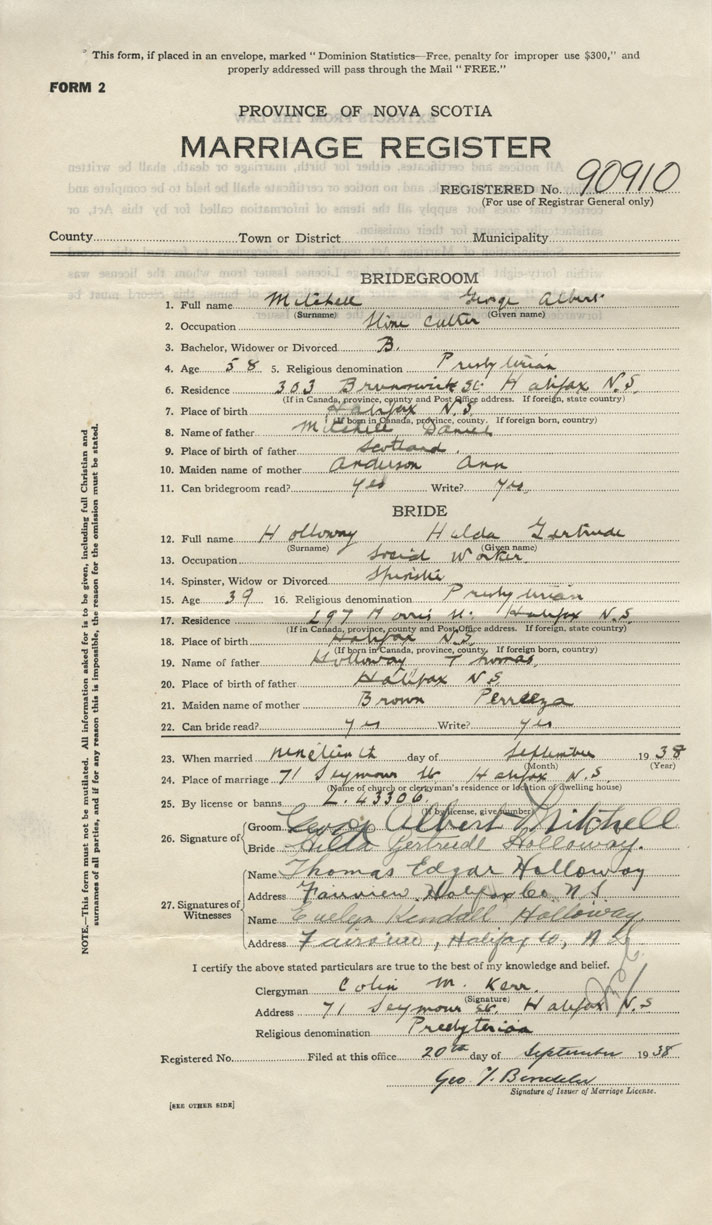 This form, if placed in an envelope, marked "Dominion Statistics—Free, penalty for improper use $300," and
properly addressed will pass through the Mail "FREE."
FORM 2
PROVINCE OF NOVA SCOTIA
MARRIAGE REGISTER
REGISTERED No. 90910
(For use of Registrar General only)
County Town or District Municipality
BRIDEGROOM
1. Full name Mitchell George Albert
(Surname) (Given name)
2. Occupation Stone Cutter
3. Bachelor, Widower or Divorced B.
4. Age 58 5. Religious denomination Presbyterian
6. Residence 303 Brunswick St. Halifax N.S.
(If in Canada, province, county and Post Office address. If foreign, state country)
7. Place of birth Halifax N.S.
(If born in Canada, province, county. If foreign born, country)
8. Name of father Mitchell Daniel
9. Place of birth of father Scotland.
10. Maiden name of mother Anderson Ann
11. Can bridegroom read? Yes Write? Yes
BRIDE
12. Full name Holloway Hilda Gertrude
(Surname) (Given name)
13. Occupation Social Worker
14. Spinster, Widow or Divorced Spinster
15. Age 39 16. Religious denomination Presbyterian
17. Residence 197 Morris St. Halifax N.S.
(If in Canada, province, county and Post Office address. If foreign, state country)
18. Place of birth Halifax N.S.
(If born in Canada, province, county. If foreign born, country)
19. Name of father Holloway Thomas
20. Place of birth of father Halifax N S
21. Maiden name of mother Brown
22. Can bride read? Yes Write? Yes
23. When married nineteenth day of September 1938
(Month) (Year)
24. Place of marriage 71 Seymour St Halifax N.S.
(Name of church or clergyman's residence or location of dwelling house)
25. By license or banns L. 43306
(If by license, give number)
26. Signature of Groom George Albert Mitchell
Bride Hilda Gertrude Holloway.
27. Signatures of Witnesses Name Thomas Edgar Holloway
Address Fairview Halifax Co. N S
Name Evelyn Kendall Holloway
Address Fairview, Halifax Co, N S
I certify the above stated particulars are true to the best of my knowledge and belief.
Clergyman Colin M. Kerr.
(Signature)
Address 71 Seymour St. Halifax N.S
Religious denomination Presbyterian
Registered No. Filed at this office 20th day of September 1938
Geo.
Signature of Issuer of Marriage License.
[SEE OTHER SIDE]
NOTE.—This form must not be mutilated. All information asked for is to be given, including full Christian and
surnames of all parties, and if for any reason this is impossible, the reason for the omission must be stated.